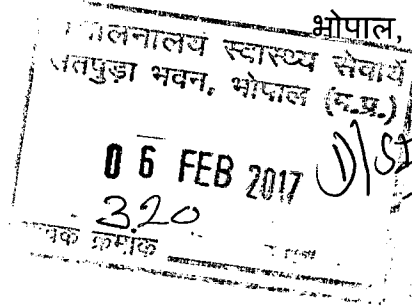 भोपाल,
स्वास्थ्य सेवायें
सतपुड़ा भवन, भोपाल (म.प्र.)
06 FEB 2017
320
क्रमांक